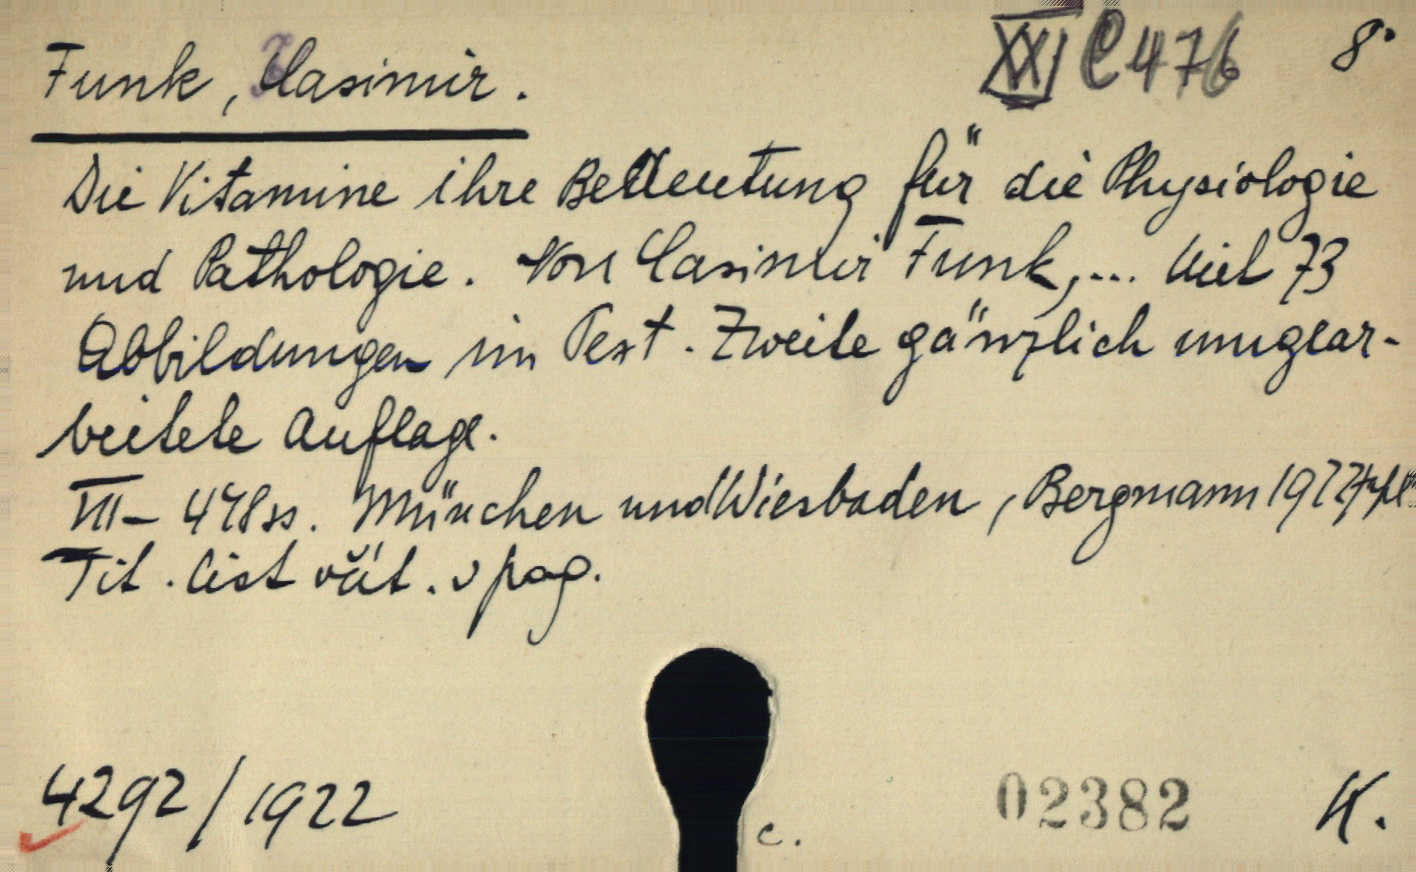 XXI C 476 8°
Funk, Casimir.
Die Vitamine ihre Bedeutung für die Physiologie
und Pathologie. Von Casimir Funk,... Mit 73
Abbildungen im Text. Zweite gänzlich umgear-
beitete Auflage.
VIII – 448 ss. München und Wiesbaden, Bergmann 1922
Tit. list v pag.
4292/1922
c.
02382
K.